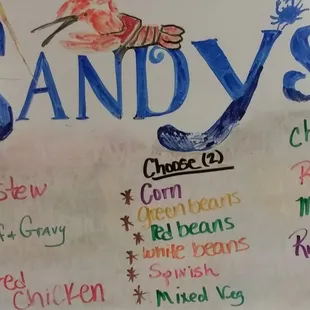 SANDY'S
Stew
& Gravy
Chicken
Choose (2)
* Corn
* Green beans
* Red beans
* white beans
* Spinish
* Mixed Veg